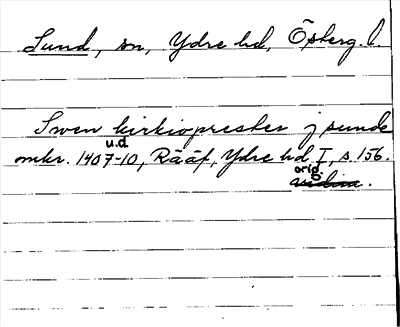 Sund, sn, Ydre hd, Östberg. l.
Swen kirkioprester j sunde
u.d.
omkr. 1407-10, Rääf, Ydre hd I, s. 156.
orig.